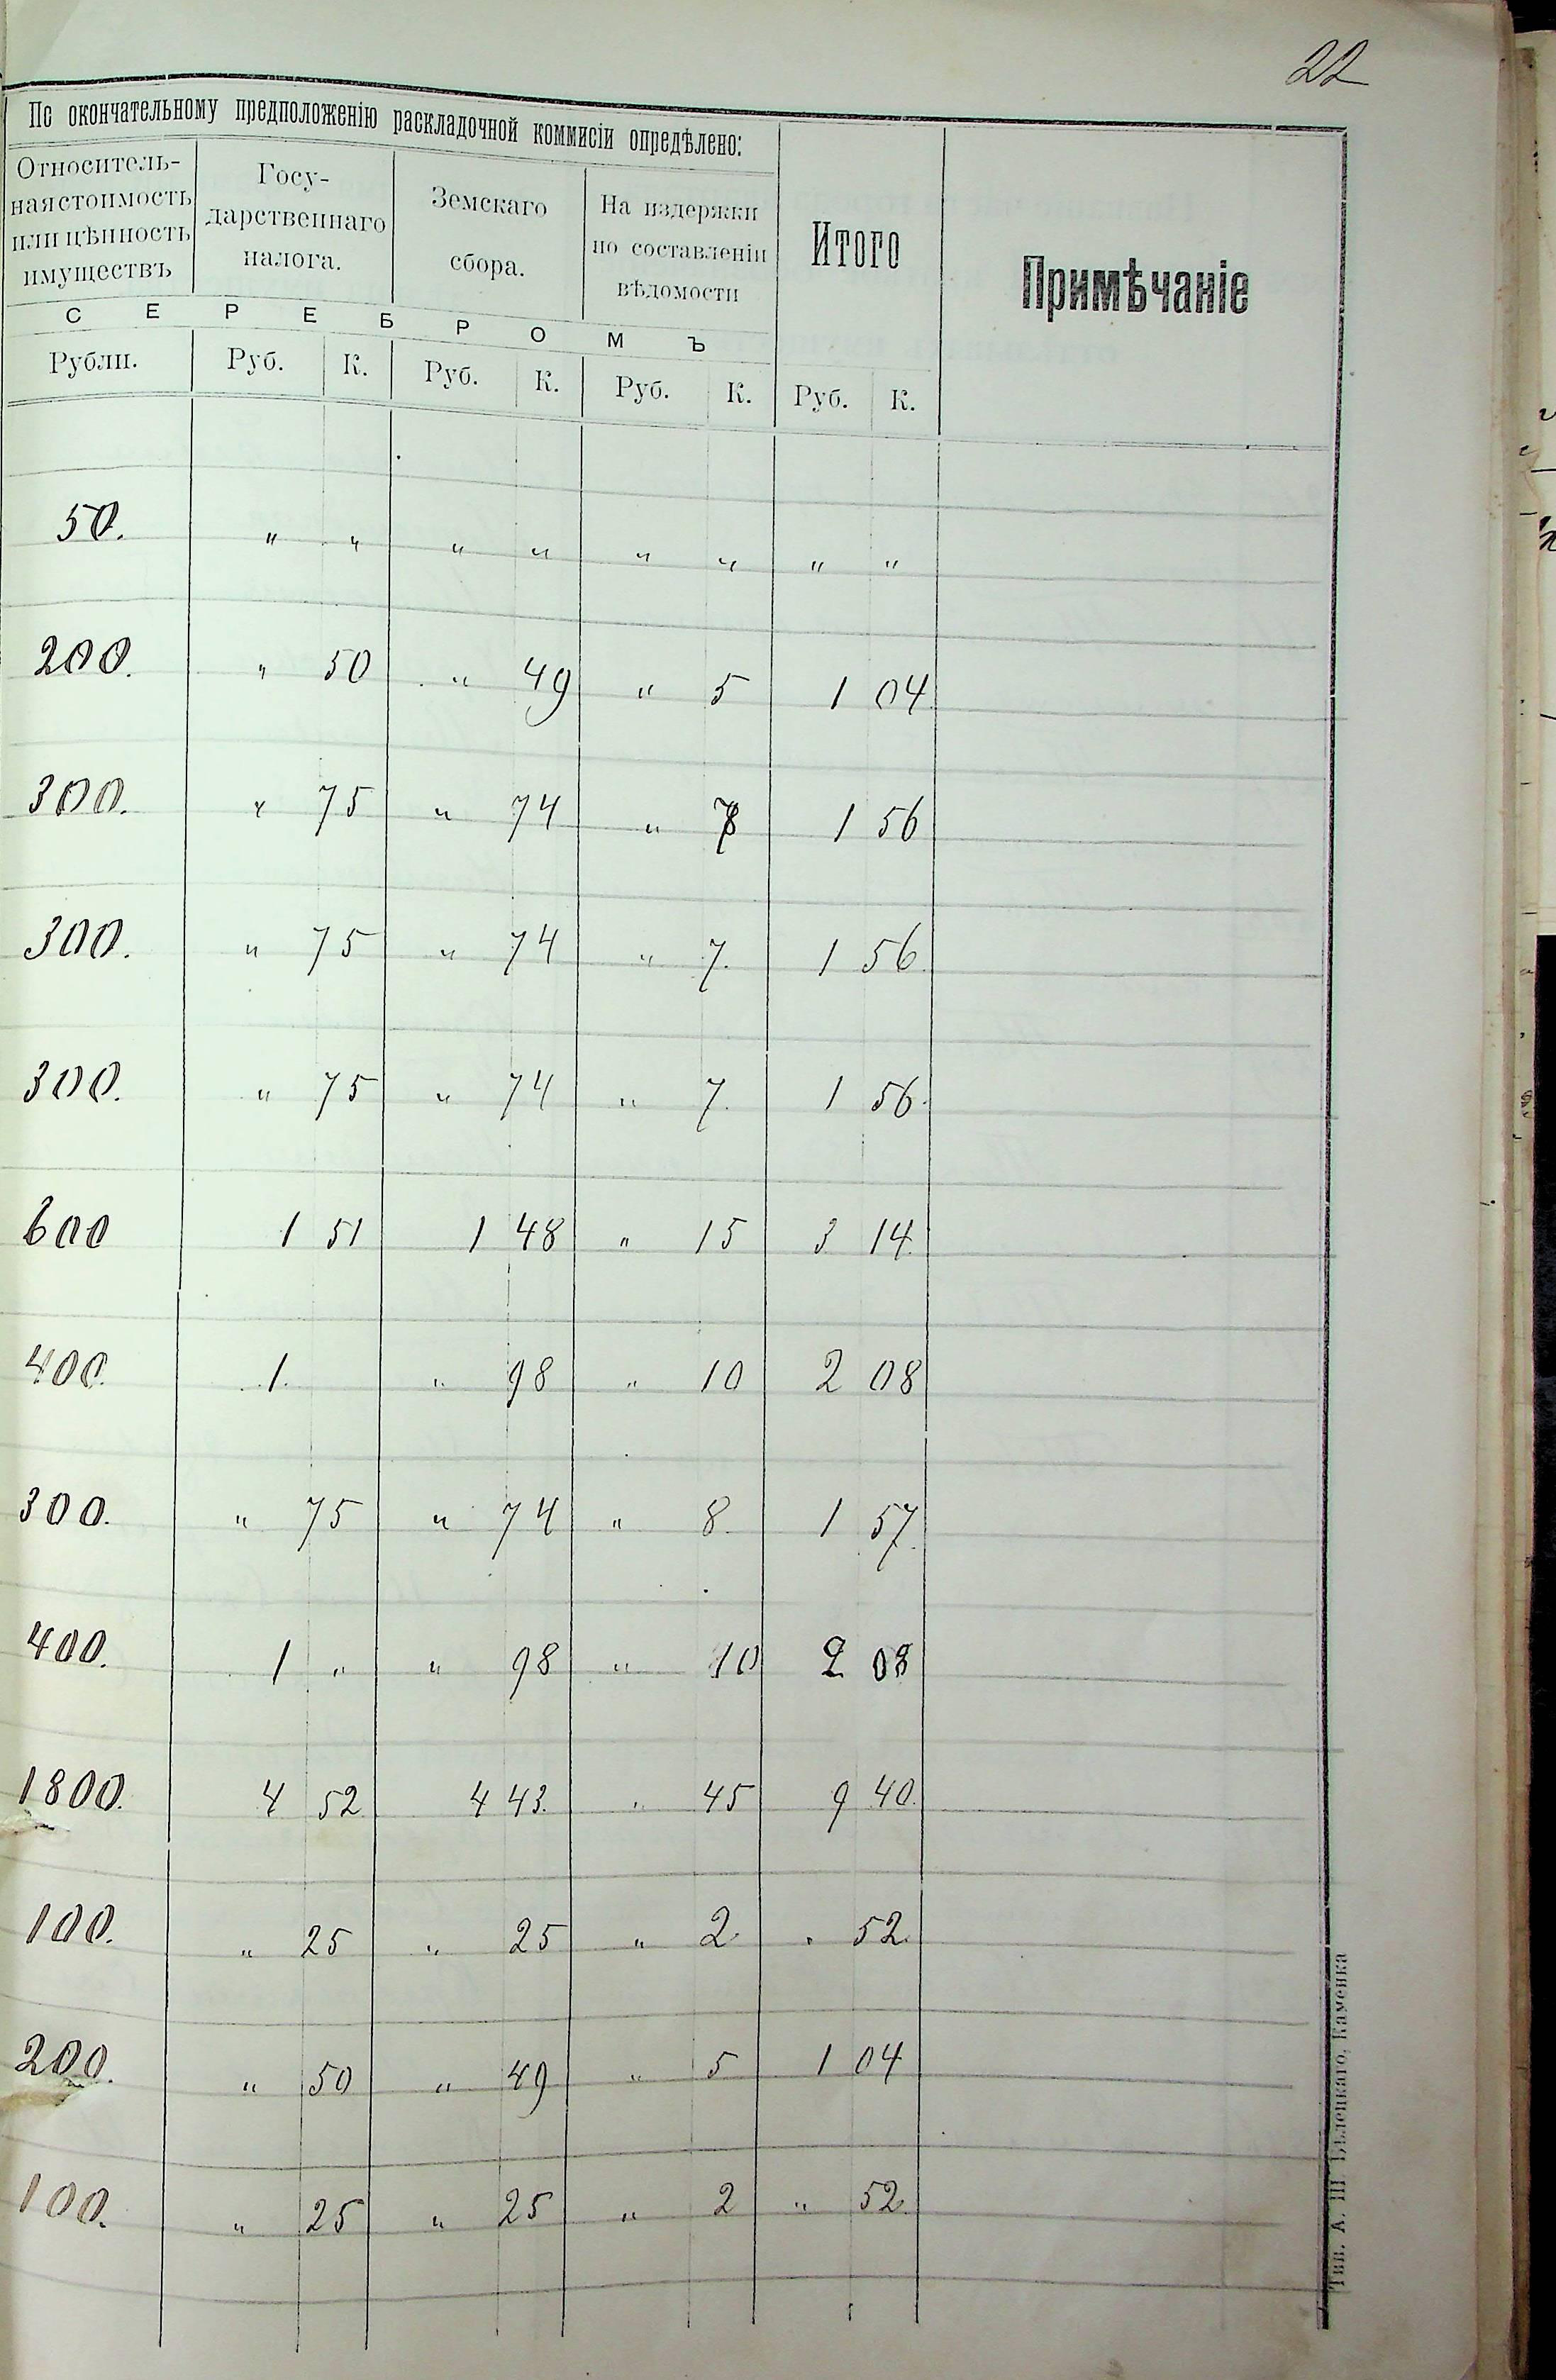 22
По окончательному предположенію раскладочной коммисіи опредѣлено:
Относитель-
ная стоимость
или цѣнность
имуществъ
Госу-
дарственнаго
налога.
Земскаго
сбора.
На издержки
по составленіи
вѣдомости
Итого
Примѣчаніе
С Е Р Е Б Р О М Ъ
Рубли. Руб. К. Руб. К. Руб. К. Руб. К.
50. " " " " " " " "
200. " 50 " 49 " 5 1 04
300. " 75 " 74 " 7 1 56
300. " 75 " 74 " 7. 1 56.
300. " 75 " 74 " 7. 1 56.
600 1 51 1 48 " 15 3 14.
400. 1. " 98 " 10 2 08
300. " 75 " 74 " 8. 1 57.
400. 1 " " 98 " 10 2 08
1800. 4 52 4 43. " 45 9 40.
100. " 25 " 25 " 2. " 52.
200. " 50 " 49 " 5 1 04
100. " 25 " 25 " 2 " 52.
Тип. А. Ш. Бѣлецкаго, Каменка